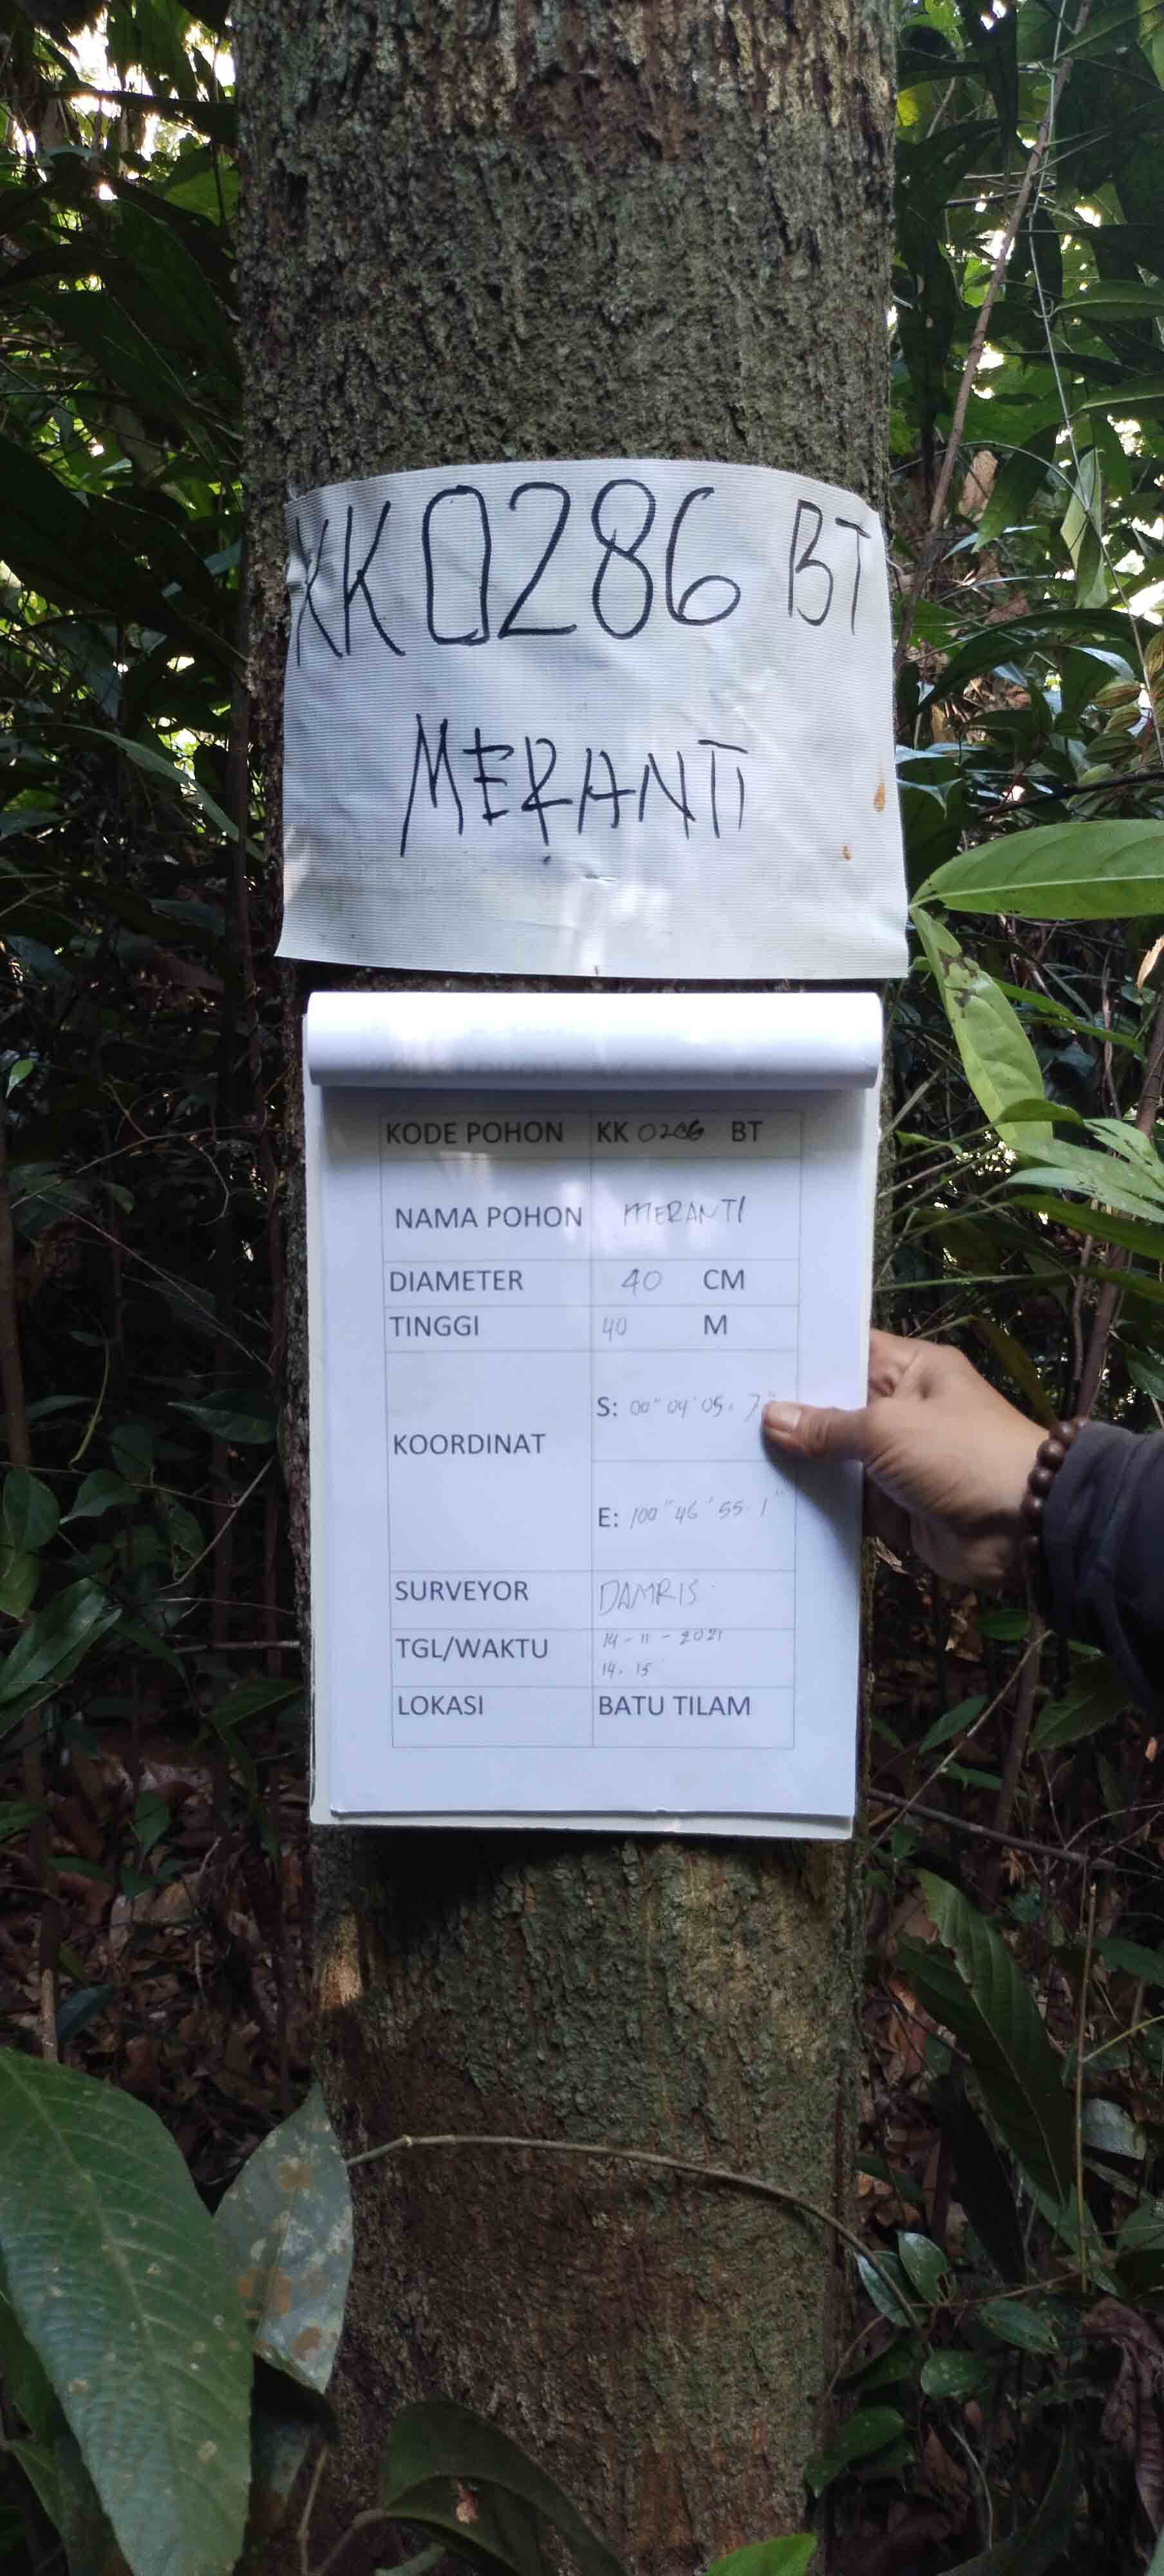 KK 0286 BT
MERANTI
KODE POHON KK 0286 BT
NAMA POHON MERANTI
DIAMETER 40 CM
TINGGI 40 M
KOORDINAT
S: 00" 04' 05. 7"
E: 100" 46' 55. 1"
SURVEYOR DAMRIS
TGL/WAKTU 14-11-2021
14. 15
LOKASI BATU TILAM